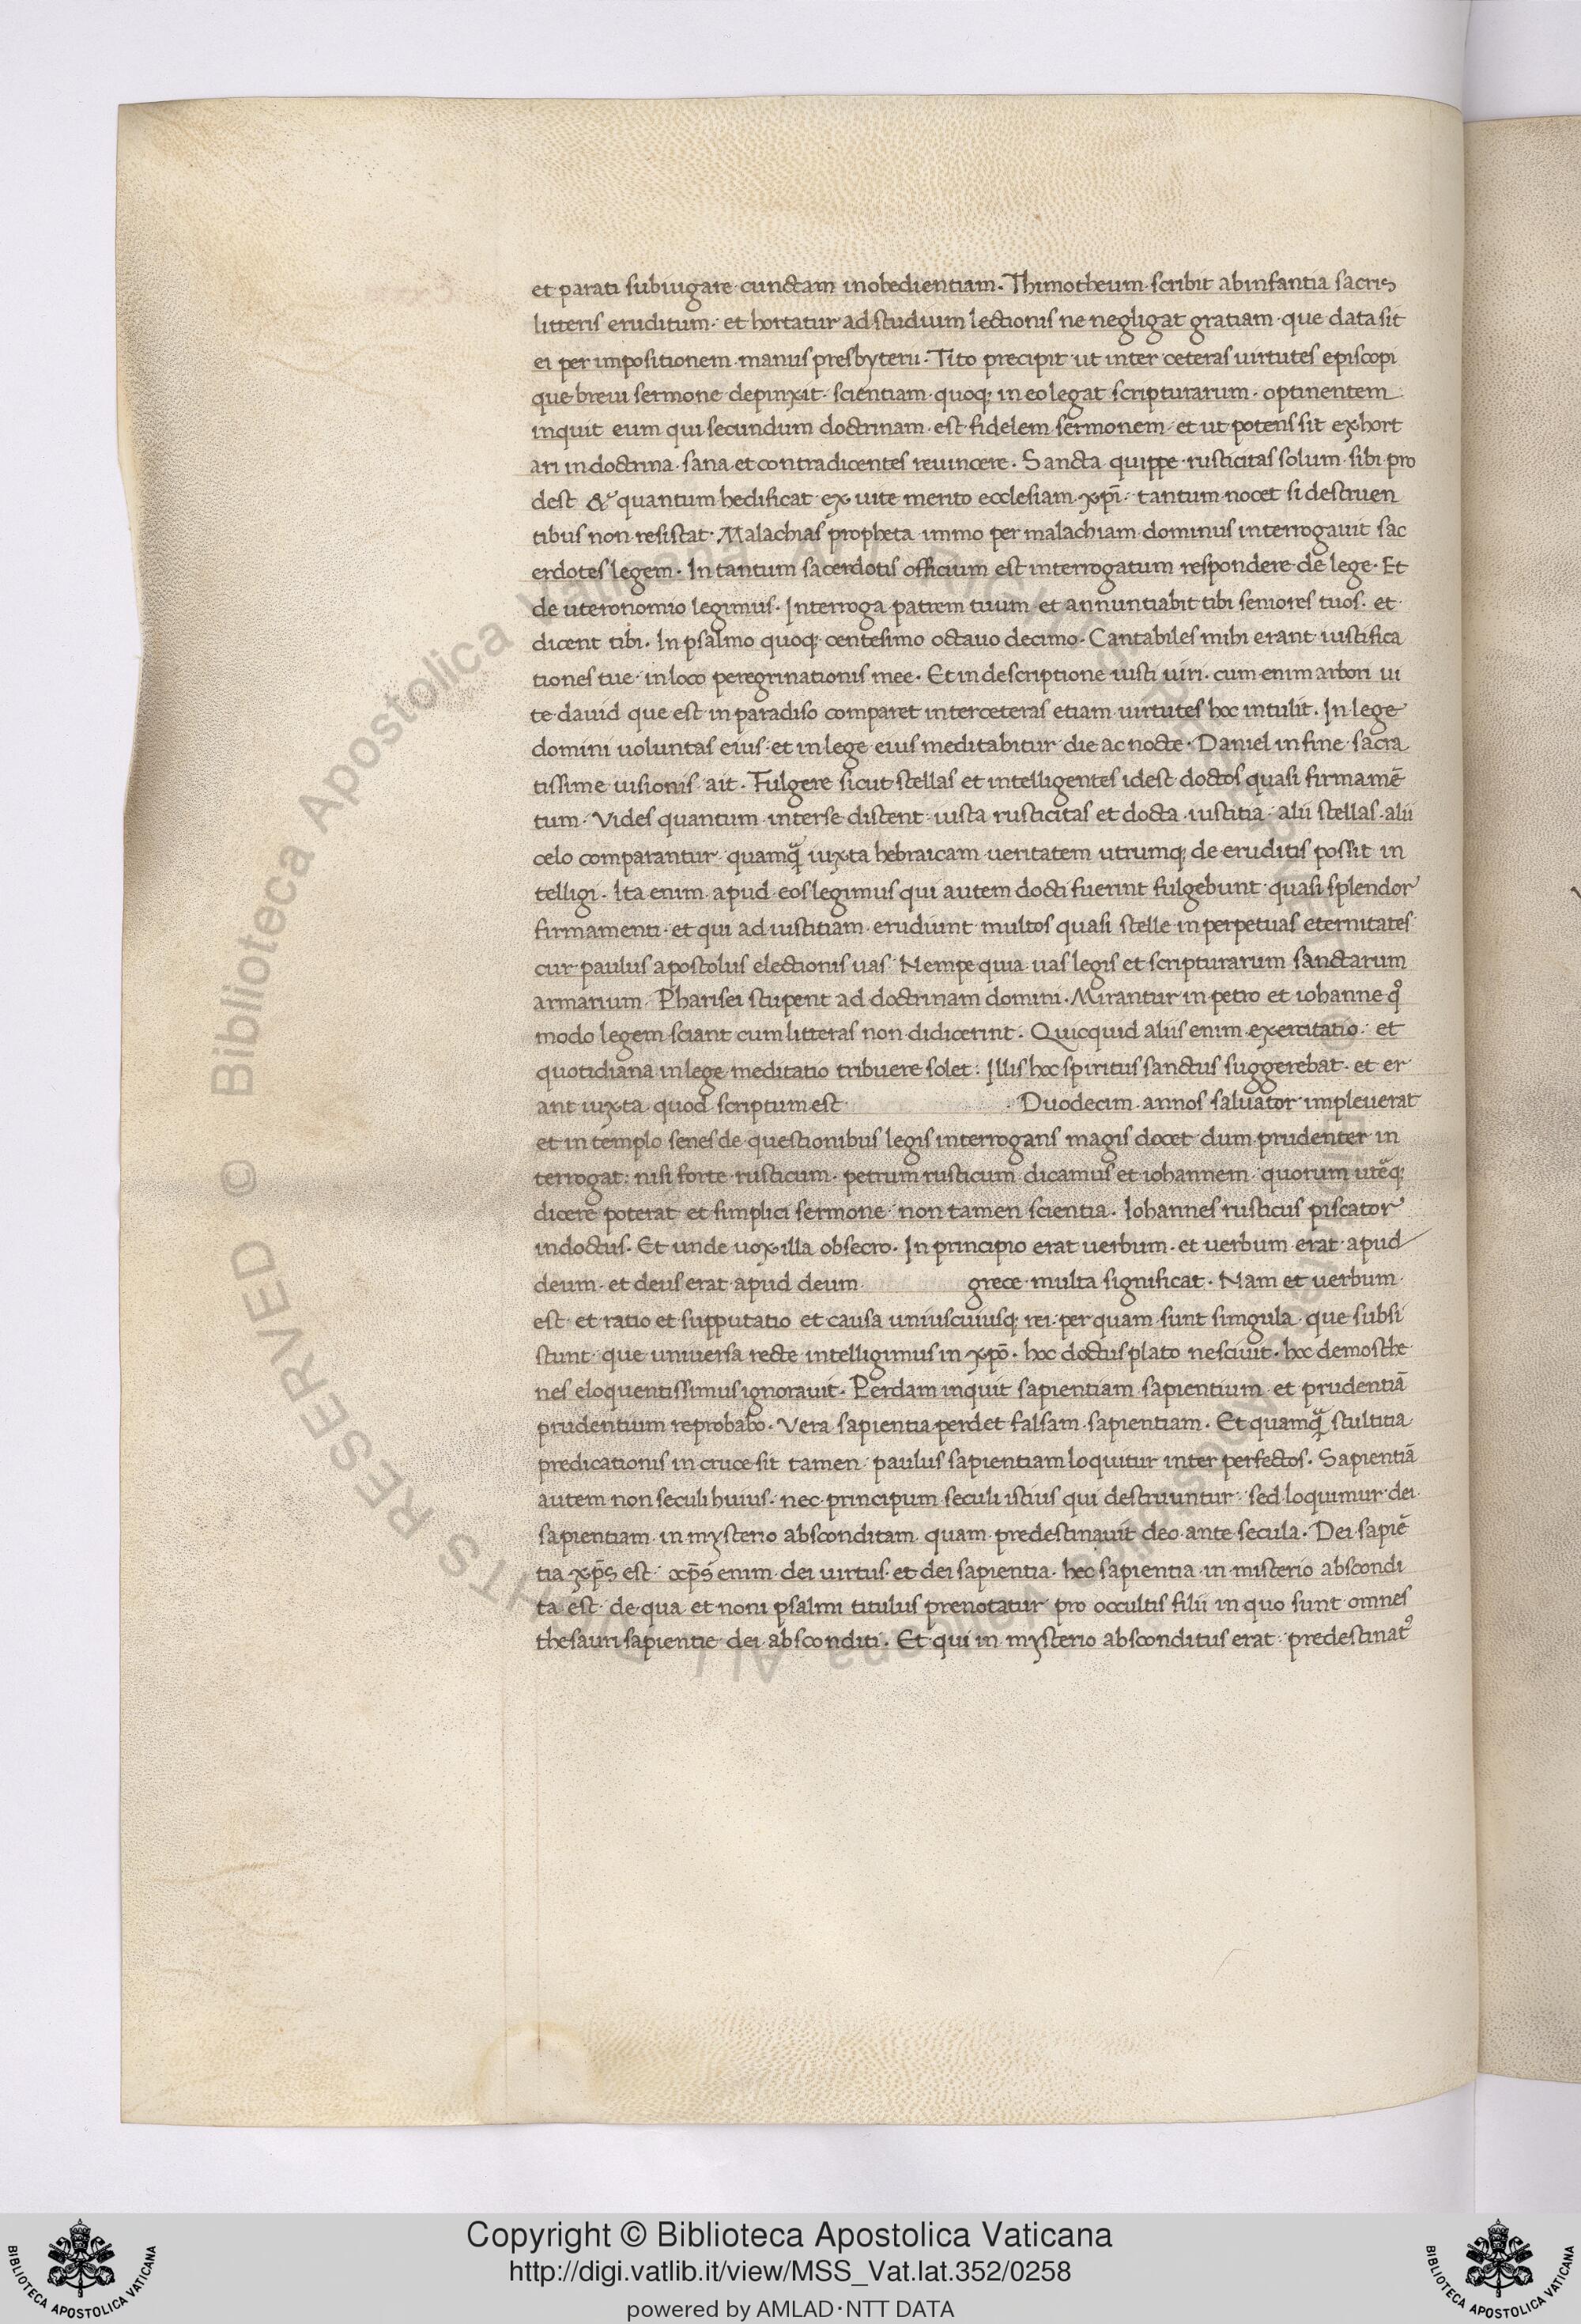 et parati subiugare cunctam inobedientiam. Thimotheum scribit abinfantia sacris
litteris eruditum. et hortatur ad studium lectionis ne negligat gratiam que data sit
ei per impositionem manus presbyterii. Tito precipit ut inter ceteras uirtutes episcopi
que breui sermone depinxit. scientiam quoq; in eo legat scripturarum. optinentem
inquit eum qui secundum doctrinam est fidelem sermonem et ut potens sit exhort
ari in doctrina sana et contradicentes reuincere. Sancta quippe rusticitas solum sibi pro
dest & quantum hedificat ex uite merito ecclesiam xp̄i. tantum nocet si destruen
tibus non resistat. Malachias propheta immo per malachiam dominus interrogauit sac
erdotes legem. In tantum sacerdotis officium est interrogatum respondere de lege. Et
de uteronomio legimus. Interroga patrem tuum et annuntiabit tibi seniores tuos. et
dicent tibi. In psalmo quoq; centesimo octauo decimo. Cantabiles mihi erant iustifica
tiones tue in loco peregrinationis mee. Et in descriptione iusti uiri. cum enim arbori ui
te dauid que est in paradiso comparet interceteras etiam uirtutes hoc intulit. In lege
domini uoluntas eius et in lege eius meditabitur die ac nocte. Daniel in fine sacra
tissime uisionis ait. Fulgere sicut stellas et intelligentes idest doctos quasi firmamē
tum. Vides quantum interse distent iusta rusticitas et docta iustitia alii stellas alii
celo comparantur quamq̄ iuxta hebraicam ueritatem utrumq; de eruditis possit in
telligi. Ita enim apud eos legimus qui autem docti fuerint fulgebunt quasi splendor
firmamenti et qui ad iustitiam erudiunt multos quasi stelle in perpetuas eternitates
cur paulus apostolus electionis uas Nempe quia uas legis et scripturarum sanctarum
armarium. Pharisei stupent ad doctrinam domini. Mirantur in petro et iohanne qͦ
modo legem sciant cum litteras non didicerint. Quicquid aliis enim exercitatio et
quotidiana in lege meditatio tribuere solet: Illis hoc spiritus sanctus suggerebat. et er
ant iuxta quod scriptum est . Duodecim annos saluator impleuerat
et in templo senes de questionibus legis interrogans magis docet dum prudenter in
terrogat: nisi forte rusticum. petrum rusticum dicamus et iohannem quorum uteq;
dicere poterat et simplici sermone non tamen scientia. Iohannes rusticus piscator
indoctus. Et unde uox illa obsecro. In principio erat uerbum. et uerbum erat apud
deum. et deus erat apud deum grece multa significat. Nam et uerbum
est et ratio et supputatio et causa uniuscuiusq; rei per quam sunt simgula que subsi
stunt que uniuersa recte intelligimus in xp̄o. hoc doctus plato nesciuit. hoc demosthe
nes eloquentissimus ignorauit. Perdam inquit sapientiam sapientium et prudentiā
prudentium reprobabo. Vera sapientia perdet falsam sapientiam. Et quamq̄ stultitia
predicationis in cruce sit tamen paulus sapientiam loquitur inter perfectos. Sapientiā
autem non seculi huius. nec principum seculi istius qui destruuntur sed loquimur dei
sapientiam in mysterio absconditam quam predestinauit deo ante secula. Dei sapiē
tia xp̄s est xp̄s enim dei uirtus et dei sapientia. hec sapientia in misterio abscondi
ta est de qua et noni psalmi titulus prenotatur pro occultis filii in quo sunt omnes
thesauri sapientie dei absconditi. Et qui in mysterio absconditus erat predestinatꝰ
© Biblioteca Apostolica Vaticana ALL RIGHTS RESERVED
Copyright © Biblioteca Apostolica Vaticana
http://digi.vatlib.it/view/MSS_Vat.lat.352/0258
powered by AMLAD·NTT DATA
BIBLIOTECA APOSTOLICA VATICANA
BIBLIOTECA APOSTOLICA VATICANA